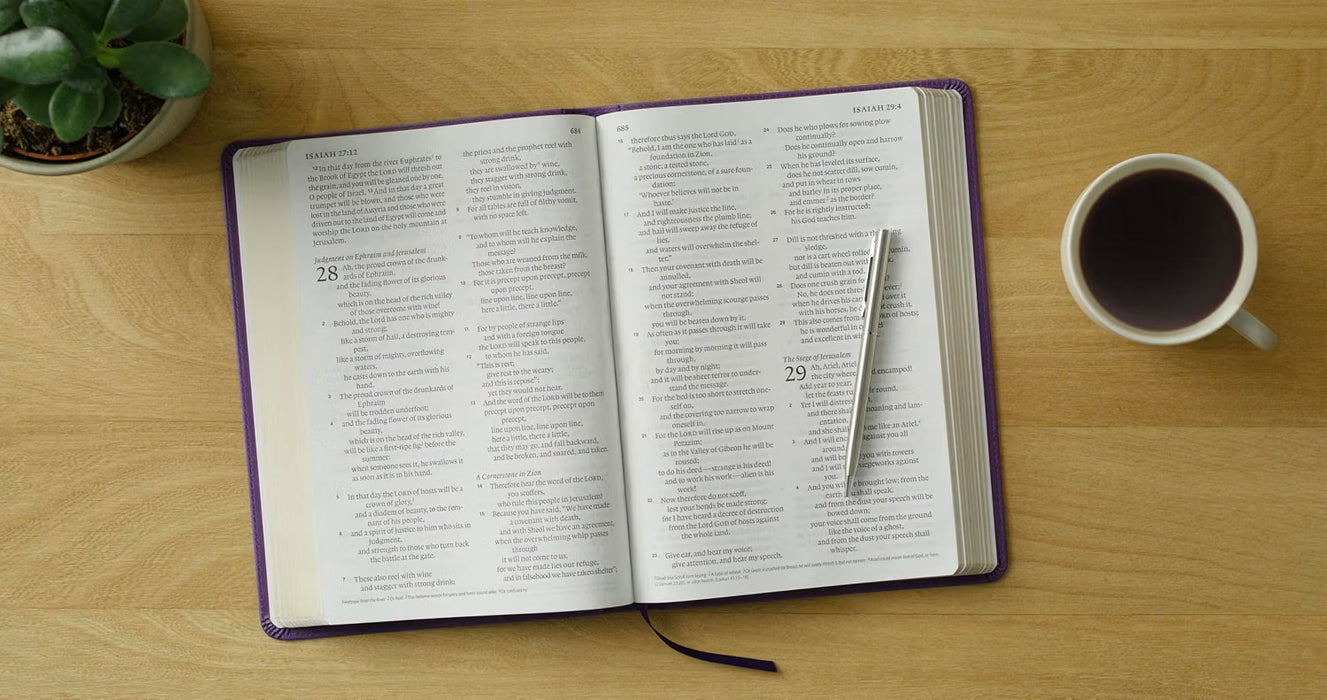 ISAIAH 27:12
684
12 In that day from the river Euphrates¹ to
the Brook of Egypt the LORD will thresh out
the grain, and you will be gleaned one by one,
O people of Israel. 13 And in that day a great
trumpet will be blown, and those who were
lost in the land of Assyria and those who were
driven out to the land of Egypt will come and
worship the LORD on the holy mountain at
Jerusalem.
Judgment on Ephraim and Jerusalem
28 Ah, the proud crown of the drunk-
ards of Ephraim,
and the fading flower of its glorious
beauty,
which is on the head of the rich valley
of those overcome with wine!
2 Behold, the Lord has one who is mighty
and strong;
like a storm of hail, a destroying tem-
pest,
like a storm of mighty, overflowing
waters,
he casts down to the earth with his
hand.
3 The proud crown of the drunkards of
Ephraim
will be trodden underfoot;
4 and the fading flower of its glorious
beauty,
which is on the head of the rich valley,
will be like a first-ripe fig² before the
summer:
when someone sees it, he swallows it
as soon as it is in his hand.
5 In that day the LORD of hosts will be a
crown of glory,³
and a diadem of beauty, to the rem-
nant of his people,
6 and a spirit of justice to him who sits in
judgment,
and strength to those who turn back
the battle at the gate.
7 These also reel with wine
and stagger with strong drink;
the priest and the prophet reel with
strong drink,
they are swallowed by⁴ wine,
they stagger with strong drink,
they reel in vision,
they stumble in giving judgment.
8 For all tables are full of filthy vomit,
with no space left.
9 "To whom will he teach knowledge,
and to whom will he explain the
message?
Those who are weaned from the milk,
those taken from the breast?
10 For it is precept upon precept, precept
upon precept,
line upon line, line upon line,
here a little, there a little."
11 For by people of strange lips
and with a foreign tongue
the LORD will speak to this people,
12 to whom he has said,
"This is rest;
give rest to the weary;
and this is repose";
yet they would not hear.
13 And the word of the LORD will be to them
precept upon precept, precept upon
precept,
line upon line, line upon line,
here a little, there a little,
that they may go, and fall backward,
and be broken, and snared, and taken.
A Cornerstone in Zion
14 Therefore hear the word of the LORD,
you scoffers,
who rule this people in Jerusalem!
15 Because you have said, "We have made
a covenant with death,
and with Sheol we have an agreement,
when the overwhelming whip passes
through
it will not come to us,
for we have made lies our refuge,
and in falsehood we have taken shelter";
685
ISAIAH 29:4
16 therefore thus says the Lord GOD,
"Behold, I am the one who has laid⁵ as a
foundation in Zion,
a stone, a tested stone,
a precious cornerstone, of a sure foun-
dation:
'Whoever believes will not be in
haste.'
17 And I will make justice the line,
and righteousness the plumb line;
and hail will sweep away the refuge of
lies,
and waters will overwhelm the shel-
ter."
18 Then your covenant with death will be
annulled,
and your agreement with Sheol will
not stand;
when the overwhelming scourge passes
through,
you will be beaten down by it.
19 As often as it passes through it will take
you;
for morning by morning it will pass
through,
by day and by night;
and it will be sheer terror to under-
stand the message.
20 For the bed is too short to stretch one-
self on,
and the covering too narrow to wrap
oneself in.
21 For the LORD will rise up as on Mount
Perazim;
as in the Valley of Gibeon he will be
roused;
to do his deed—strange is his deed!
and to work his work—alien is his
work!
22 Now therefore do not scoff,
lest your bonds be made strong;
for I have heard a decree of destruction
from the Lord GOD of hosts against
the whole land.
23 Give ear, and hear my voice;
give attention, and hear my speech.
24 Does he who plows for sowing plow
continually?
Does he continually open and harrow
his ground?
25 When he has leveled its surface,
does he not scatter dill, sow cumin,
and put in wheat in rows
and barley in its proper place,
and emmer⁶ as the border?
26 For he is rightly instructed;
his God teaches him.
27 Dill is not threshed with a
sledge,
nor is a cart wheel rolled cumin,
but dill is beaten out with
and cumin with a rod.
28 Does one crush grain
No, he does not
when he drives his over it
with his horses, he crush it.
29 This also comes from of hosts;
he is wonderful in
and excellent in
The Siege of Jerusalem
29 Ah, Ariel, Ariel
the city where encamped!
Add year to year;
let the feasts round.
2 Yet I will distress
and there moaning and lam-
entation,
and she me like an Ariel.
3 And I will against you all
around,
and will you with towers
and I will siegeworks against
you.
4 And you will brought low; from the
earth you shall speak,
and from the dust your speech will be
bowed down;
your voice shall come from the ground
like the voice of a ghost,
and from the dust your speech shall
whisper.